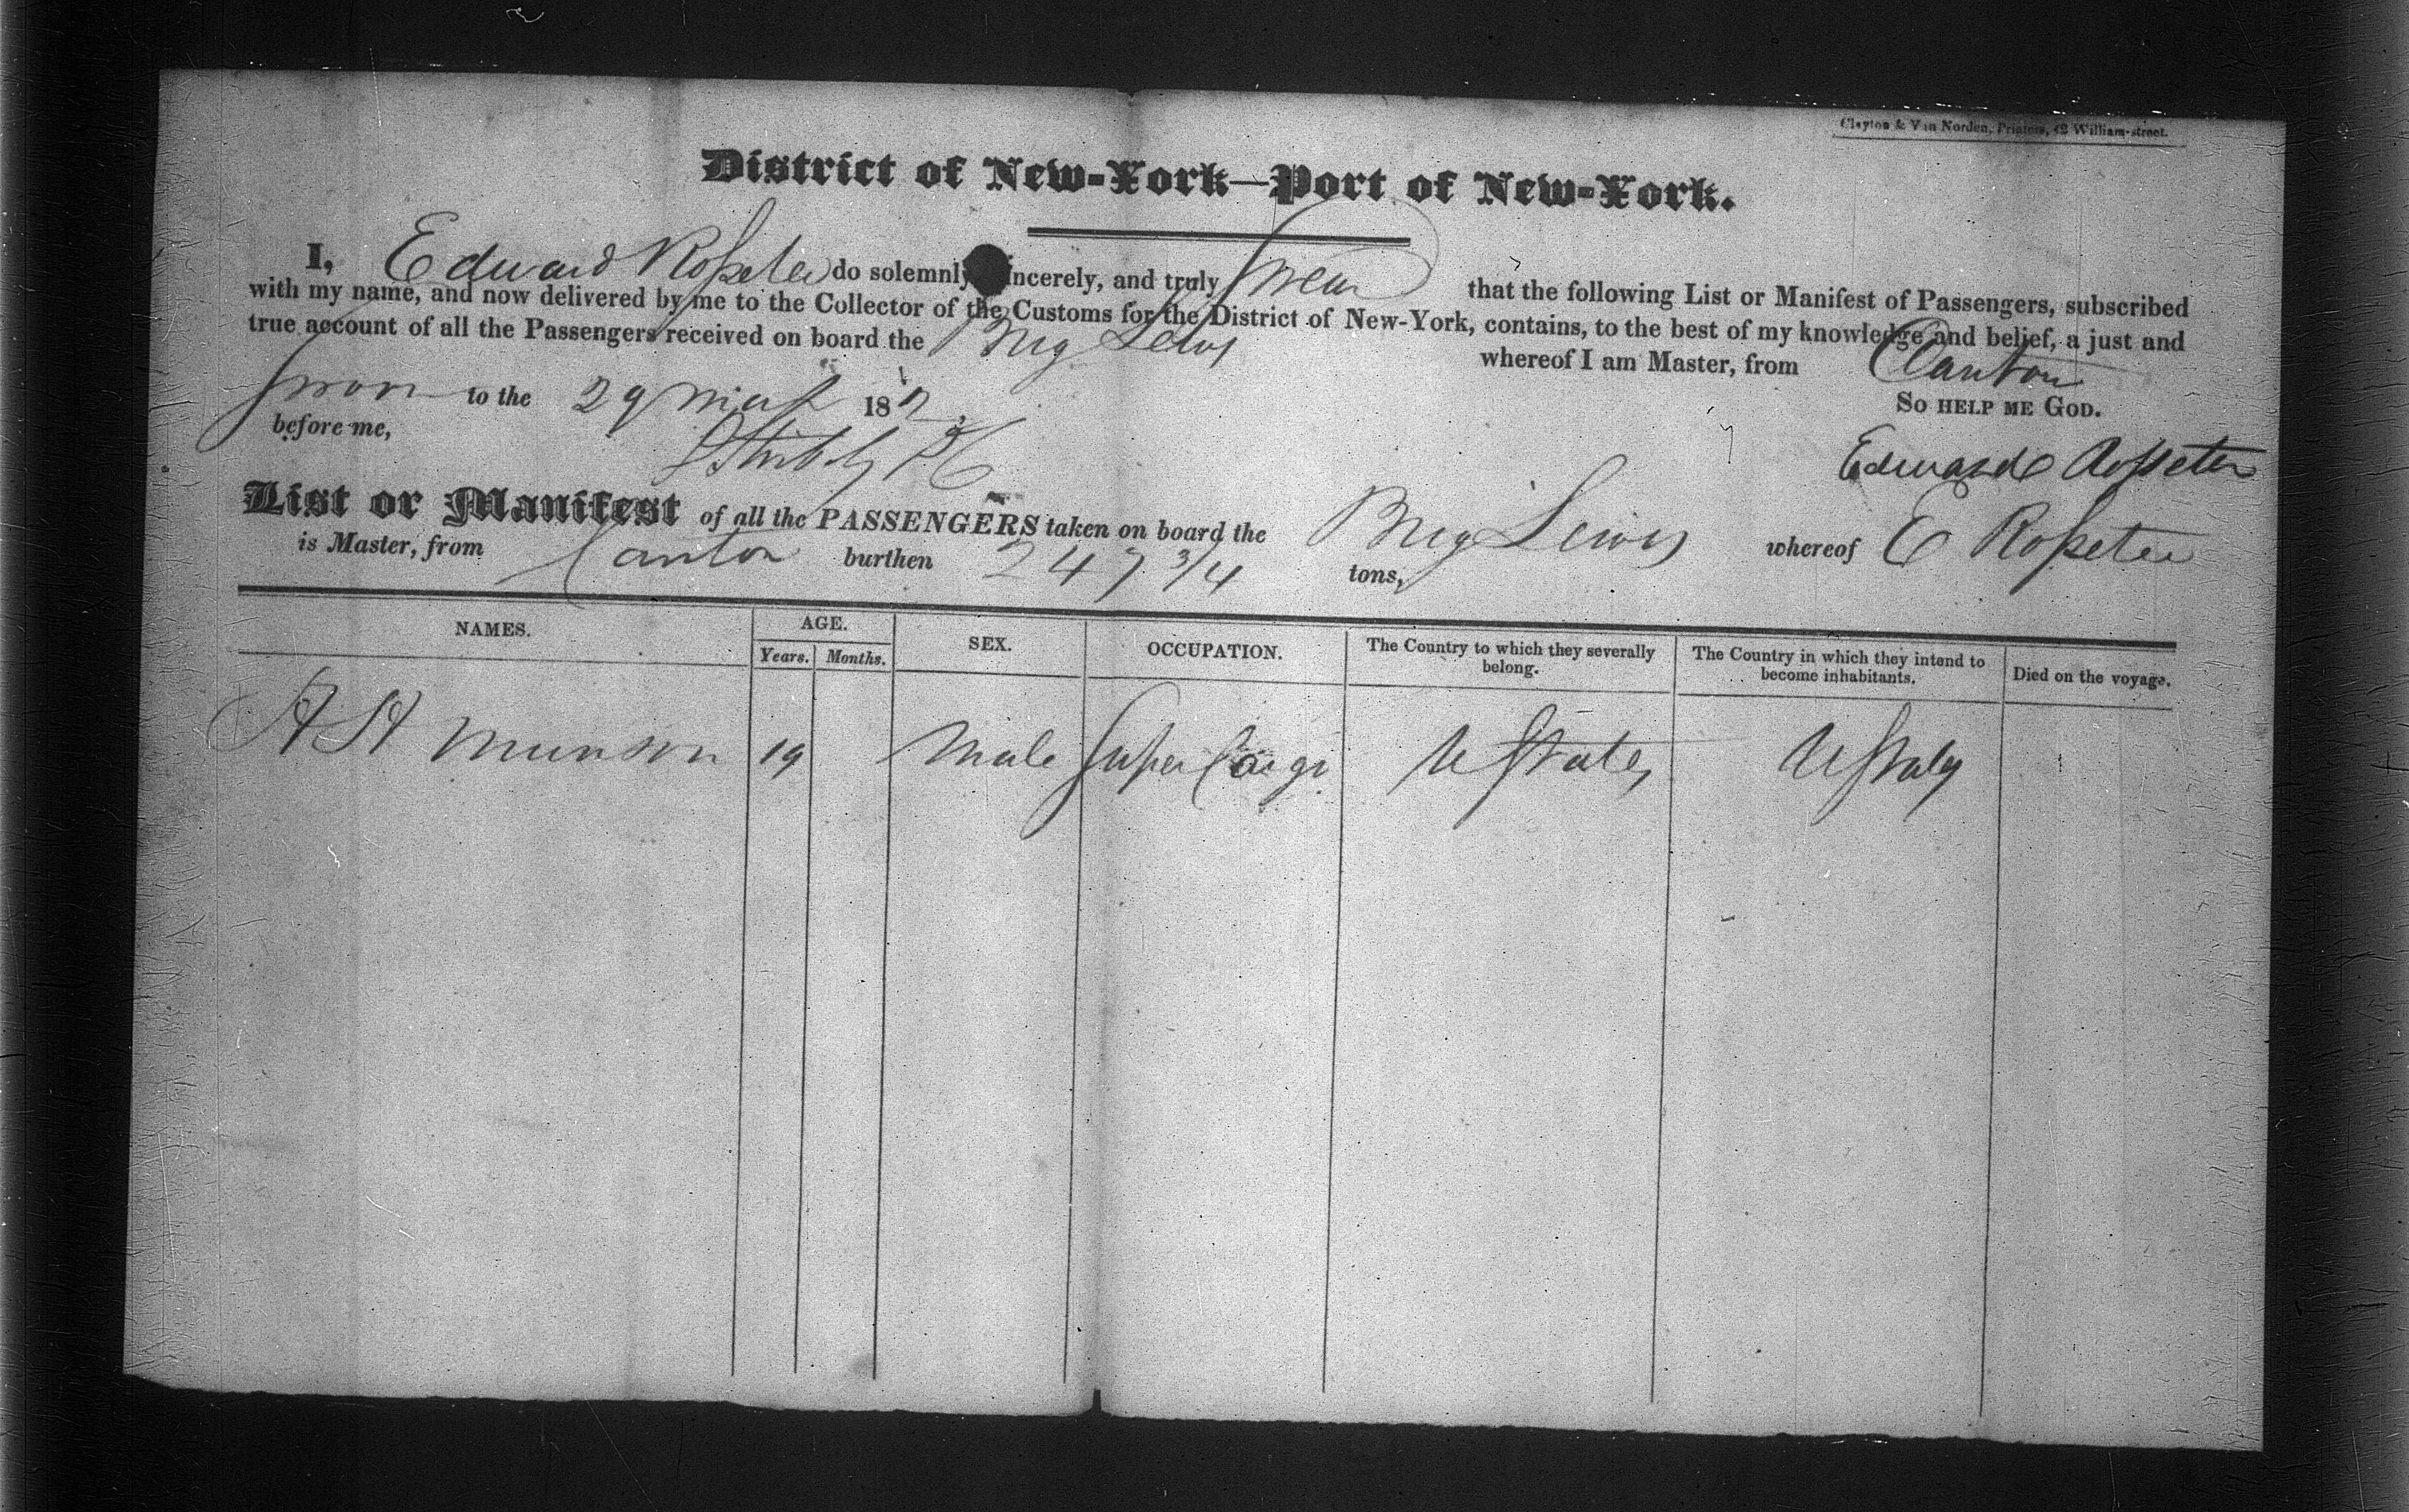 Clayton & Van Norden, Printers, 42 William-street.
District of New-York—Port of New-York.
I, Edward Rosseter do solemnly, sincerely, and truly Swear that the following List or Manifest of Passengers, subscribed
with my name, and now delivered by me to the Collector of the Customs for the District of New-York, contains, to the best of my knowledge and belief, a just and
true account of all the Passengers received on board the Brig Lewis whereof I am Master, from Canton
Sworn to the 29 182
So help me God.
before me,
Edward Rosseter
List or Manifest of all the PASSENGERS taken on board the Brig Lewis whereof E Rosseter
is Master, from Canton burthen 247 3/4 tons,
NAMES. AGE. SEX. OCCUPATION. The Country to which they severally belong. The Country in which they intend to become inhabitants. Died on the voyage.
Years. Months.
Munson 19 Male Super Cargo U States U States